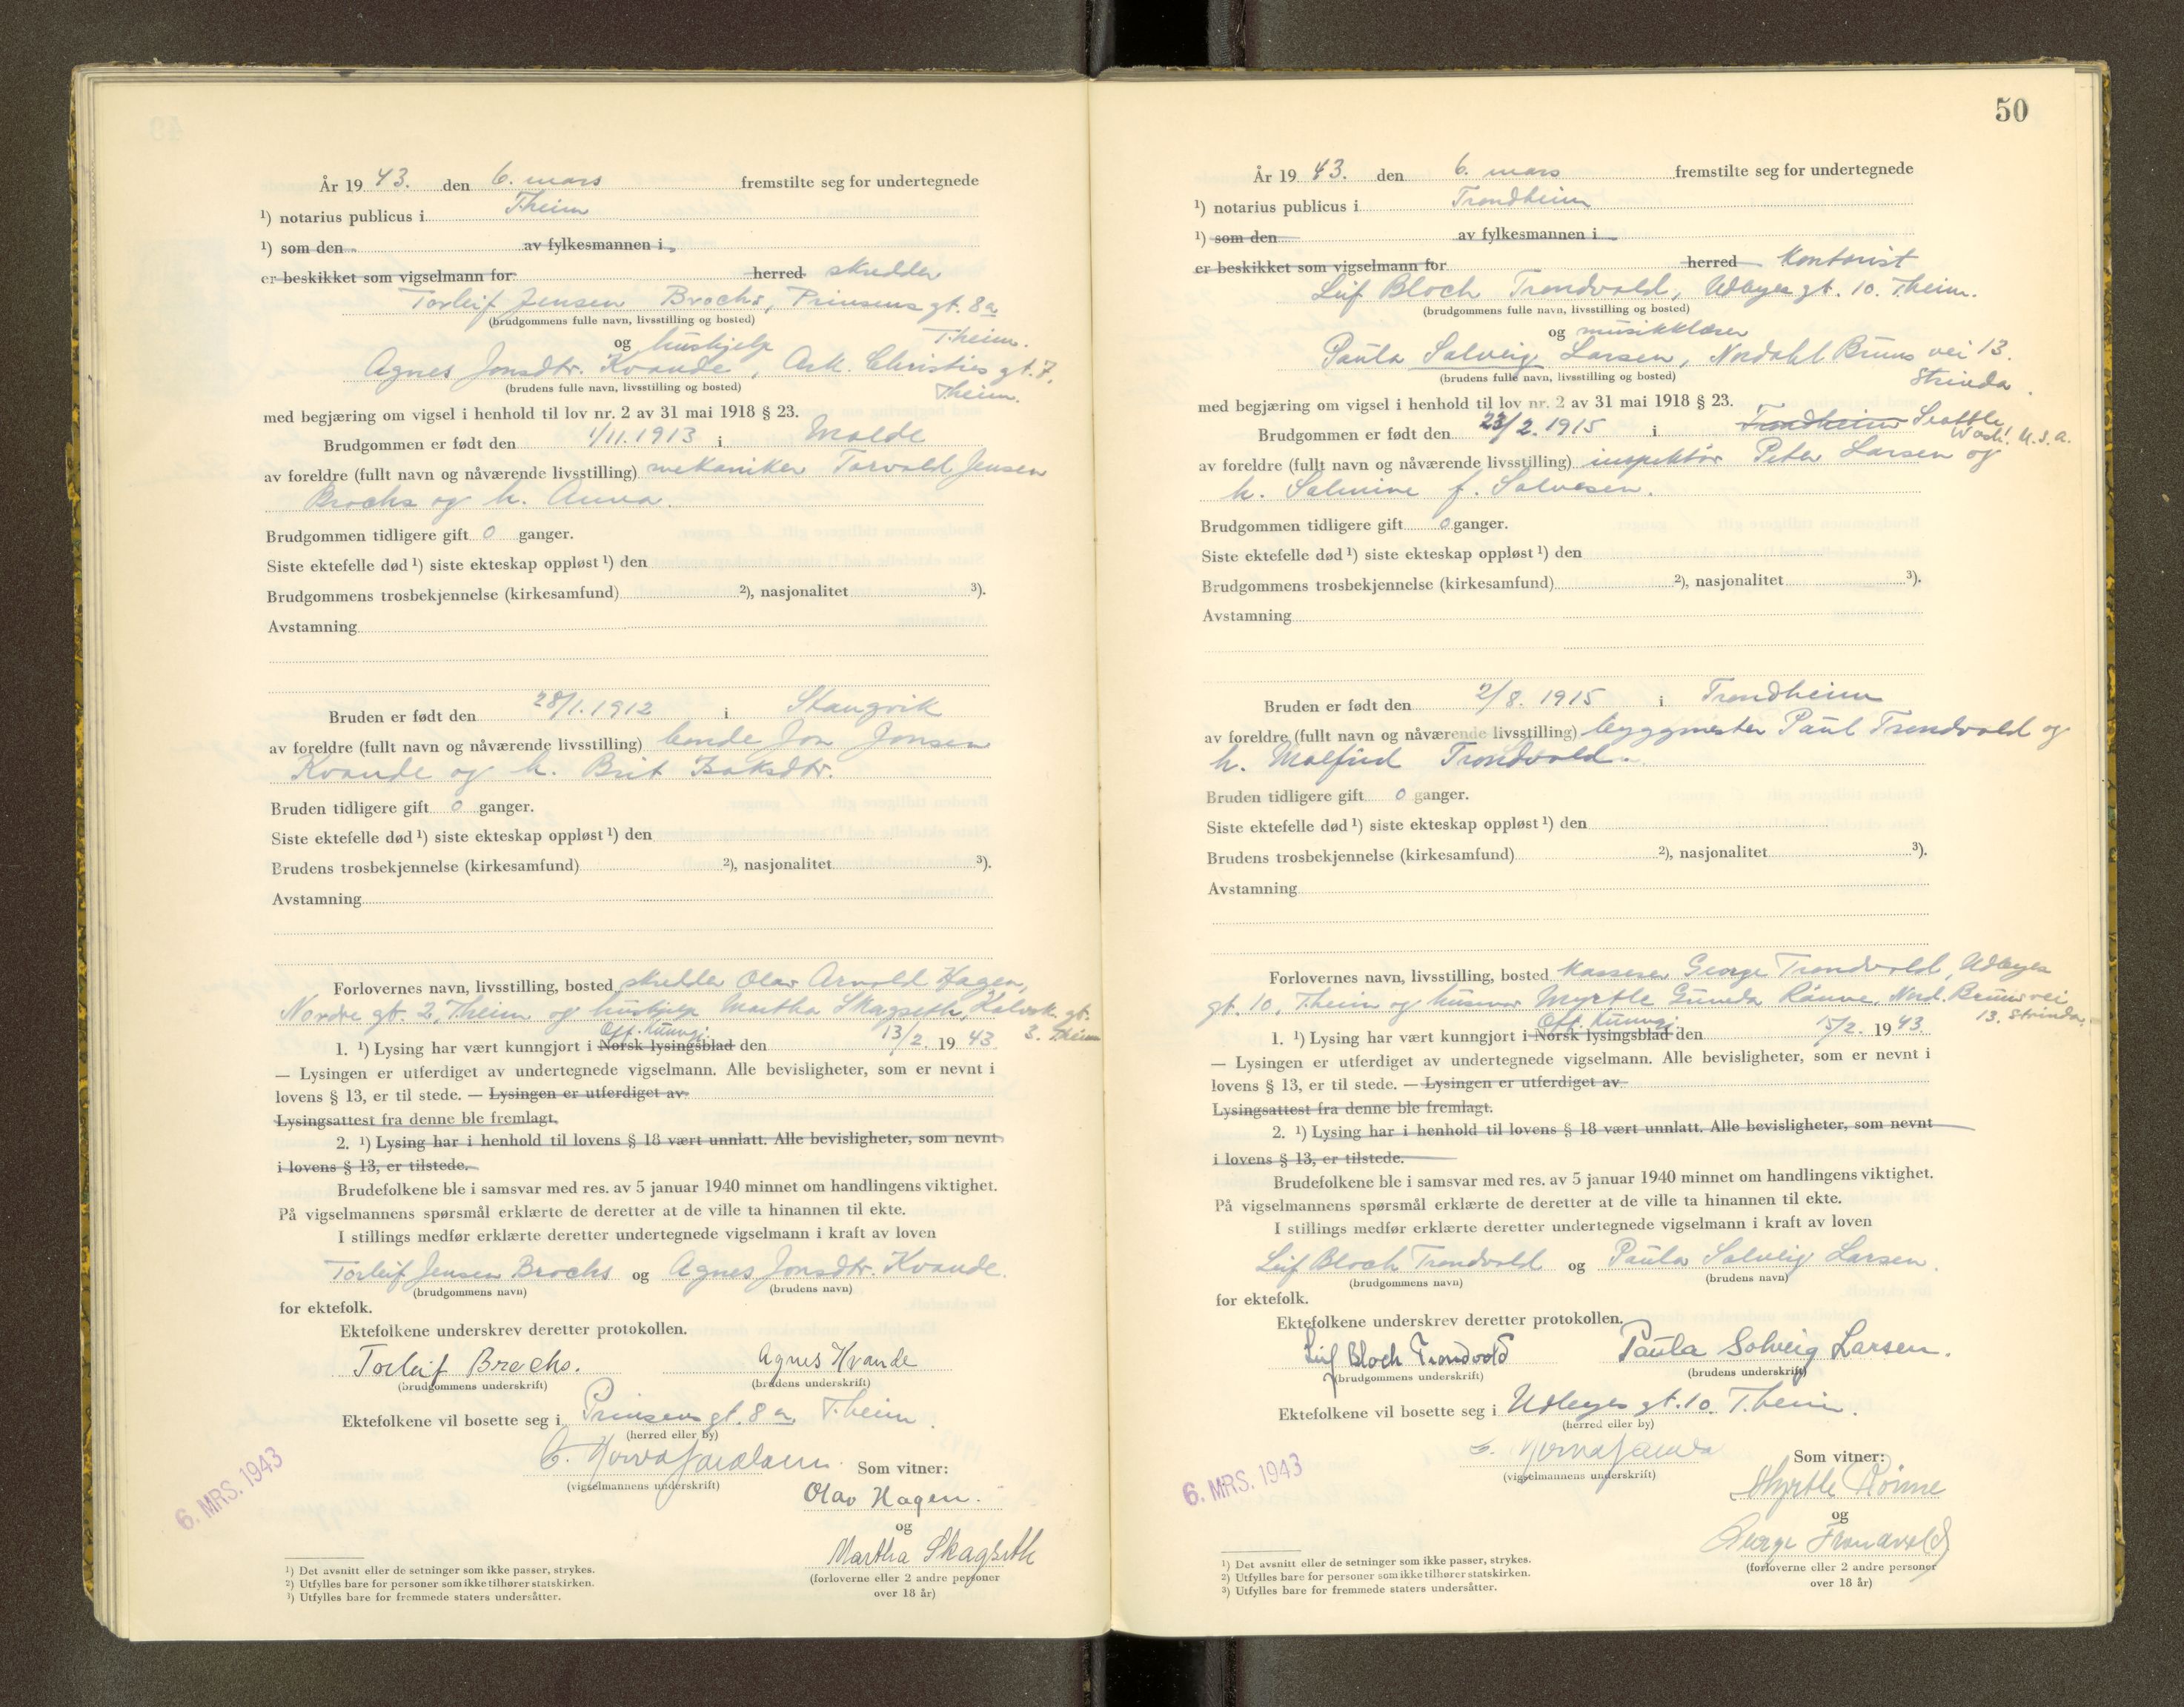 År 19 43. den 6. mars fremstilte seg for undertegnede
¹) notarius publicus i T.heim
¹) som den av fylkesmannen i
er beskikket som vigselmann for herred skredder
Torleif Jensen Brochs, Prinsens gt. 8a
(brudgommens fulle navn, livsstilling og bosted) T.heim.
og hushjelp
Agnes Jonsdtr. Kvande, Ark. Christies gt. 7,
(brudens fulle navn, livsstilling og bosted) T.heim.
med begjæring om vigsel i henhold til lov nr. 2 av 31 mai 1918 § 23.
Brudgommen er født den 1/11. 1913 i Molde
av foreldre (fullt navn og nåværende livsstilling) mekaniker Torvald Jensen
Brochs og h. Anna.
Brudgommen tidligere gift 0 ganger.
Siste ektefelle død ¹) siste ekteskap oppløst ¹) den
Brudgommens trosbekjennelse (kirkesamfund) ²), nasjonalitet ³).
Avstamning
Bruden er født den 28/1. 1912 i Stangvik
av foreldre (fullt navn og nåværende livsstilling) bonde Jon Jonsen
Kvande og h. Brit Isaksdtr.
Bruden tidligere gift 0 ganger.
Siste ektefelle død ¹) siste ekteskap oppløst ¹) den
Brudens trosbekjennelse (kirkesamfund) ²), nasjonalitet ³).
Avstamning
Forlovernes navn, livsstilling, bosted skredder Olav Arnold Hagen,
Nordre gt. 2, T.heim og hushjelp Martha Skagseth, Kalvsk. gt.
3. T.heim
Off. kunngj.
1. ¹) Lysing har vært kunngjort i Norsk lysingsblad den 13/2. 19 43.
— Lysingen er utferdiget av undertegnede vigselmann. Alle bevisligheter, som er nevnt i
lovens § 13, er til stede. — Lysingen er utferdiget av
Lysingsattest fra denne ble fremlagt.
2. ¹) Lysing har i henhold til lovens § 18 vært unnlatt. Alle bevisligheter, som nevnt
i lovens § 13, er tilstede.
Brudefolkene ble i samsvar med res. av 5 januar 1940 minnet om handlingens viktighet.
På vigselmannens spørsmål erklærte de deretter at de ville ta hinannen til ekte.
I stillings medfør erklærte deretter undertegnede vigselmann i kraft av loven
Torleif Jensen Brochs og Agnes Jonsdtr. Kvande.
(brudgommens navn) (brudens navn)
for ektefolk.
Ektefolkene underskrev deretter protokollen.
Torleif Brochs. Agnes Kvande
(brudgommens underskrift) (brudens underskrift)
Ektefolkene vil bosette seg i Prinsens gt. 8a. T.heim.
(herred eller by)
(vigselmannens underskrift) Som vitner:
6. MRS. 1943
Olav Hagen.
og
Martha Skagseth
(forloverne eller 2 andre personer
over 18 år)
¹) Det avsnitt eller de setninger som ikke passer, strykes.
²) Utfylles bare for personer som ikke tilhører statskirken.
³) Utfylles bare for fremmede staters undersåtter.
50
År 19 43. den 6. mars fremstilte seg for undertegnede
¹) notarius publicus i Trondheim
¹) som den av fylkesmannen i
er beskikket som vigselmann for herred Kontorist
Leif Bloch Trondvold, Udbyes gt. 10. T.heim.
(brudgommens fulle navn, livsstilling og bosted)
og musikklærer
Paula Solveig Larsen, Nordahl Bruns vei 13.
(brudens fulle navn, livsstilling og bosted) Strinda.
med begjæring om vigsel i henhold til lov nr. 2 av 31 mai 1918 § 23.
Brudgommen er født den 23/2. 1915 i Trondheim Seattle
Wash. U.S.A.
av foreldre (fullt navn og nåværende livsstilling) inspektør Peter Larsen og
h. Salmine f. Salvesen.
Brudgommen tidligere gift 0 ganger.
Siste ektefelle død ¹) siste ekteskap oppløst ¹) den
Brudgommens trosbekjennelse (kirkesamfund) ²), nasjonalitet ³).
Avstamning
Bruden er født den 2/8. 1915 i Trondheim
av foreldre (fullt navn og nåværende livsstilling) byggmester Paul Trondvold og
h. Malfrid Trondvold.
Bruden tidligere gift 0 ganger.
Siste ektefelle død ¹) siste ekteskap oppløst ¹) den
Brudens trosbekjennelse (kirkesamfund) ²), nasjonalitet ³).
Avstamning
Forlovernes navn, livsstilling, bosted kasserer George Trondvold, Udbyes
gt. 10, T.heim og husmor Myrtle Gunda Rønne, Nord. Bruns vei
13. Strinda.
Off. kunngj.
1. ¹) Lysing har vært kunngjort i Norsk lysingsblad den 15/2. 19 43.
— Lysingen er utferdiget av undertegnede vigselmann. Alle bevisligheter, som er nevnt i
lovens § 13, er til stede. — Lysingen er utferdiget av
Lysingsattest fra denne ble fremlagt.
2. ¹) Lysing har i henhold til lovens § 18 vært unnlatt. Alle bevisligheter, som nevnt
i lovens § 13, er tilstede.
Brudefolkene ble i samsvar med res. av 5 januar 1940 minnet om handlingens viktighet.
På vigselmannens spørsmål erklærte de deretter at de ville ta hinannen til ekte.
I stillings medfør erklærte deretter undertegnede vigselmann i kraft av loven
Leif Bloch Trondvold og Paula Solveig Larsen.
(brudgommens navn) (brudens navn)
for ektefolk.
Ektefolkene underskrev deretter protokollen.
Leif Bloch Trondvold Paula Solveig Larsen.
(brudgommens underskrift) (brudens underskrift)
Ektefolkene vil bosette seg i Udbyes gt. 10. T.heim.
(herred eller by)
(vigselmannens underskrift) Som vitner:
6. MRS. 1943
Myrtle Rönne
og
George Trondvold
(forloverne eller 2 andre personer
over 18 år)
¹) Det avsnitt eller de setninger som ikke passer, strykes.
²) Utfylles bare for personer som ikke tilhører statskirken.
³) Utfylles bare for fremmede staters undersåtter.